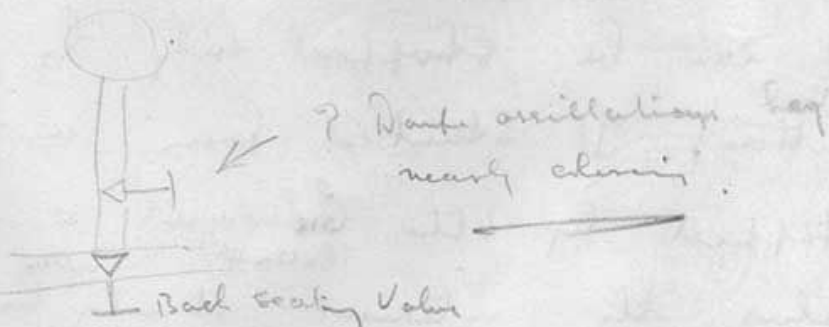 ? Damp oscillations by
nearly closing.
Back seating Valve